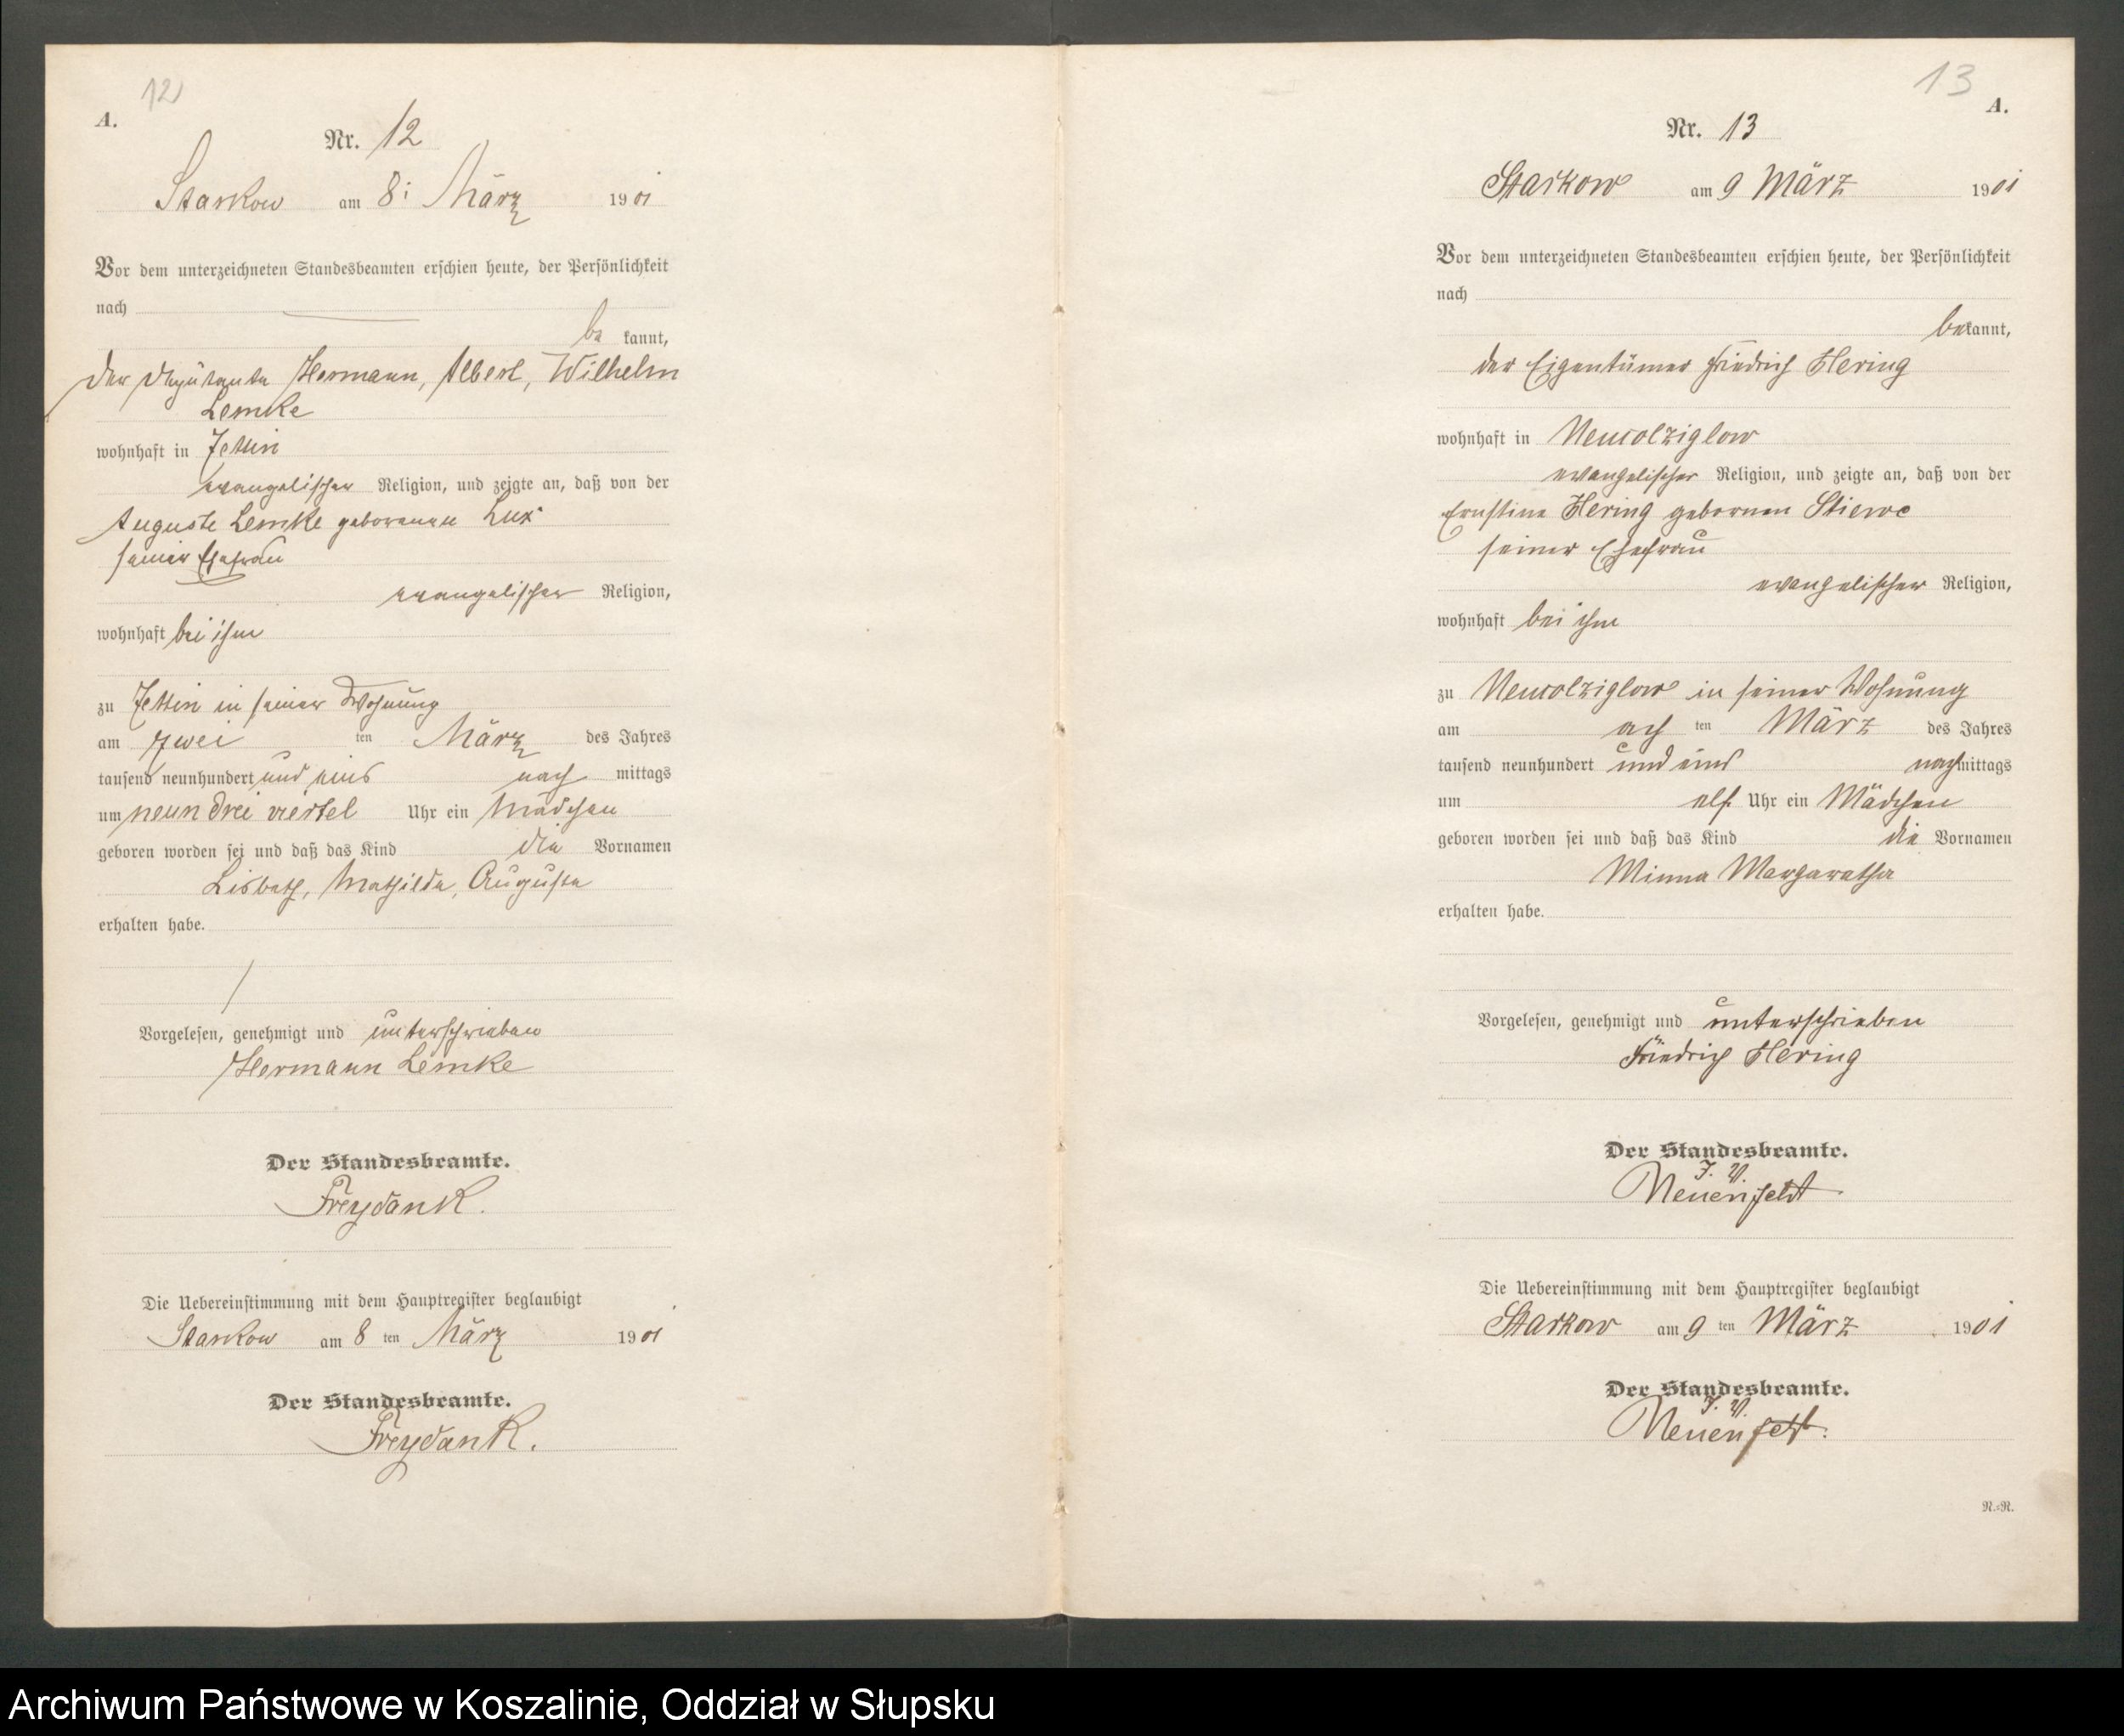 12
A.
Nr. 12
Starkow am 8. März 1901
Vor dem unterzeichneten Standesbeamten erschien heute, der Persönlichkeit
nach
be kannt,
der Deputante Hermann, Albert, Wilhelm
Lemke
wohnhaft in Jettin
evangelischer Religion, und zeigte an, daß von der
Auguste Lemke geborenen Lux
seiner Ehefrau
evangelischer Religion,
wohnhaft bei ihm
zu Jettin in seiner Wohnung
am zwei ten März des Jahres
tausend neunhundert und eins nach mittags
um neun drei viertel Uhr ein Mädchen
geboren worden sei und daß das Kind die Vornamen
Lisbeth, Mathilde, Auguste
erhalten habe.
Vorgelesen, genehmigt und unterschrieben
Hermann Lemke
Der Standesbeamte.
Freydank.
Die Uebereinstimmung mit dem Hauptregister beglaubigt
Starkow am 8 ten März 1901
Der Standesbeamte.
Freydank.
13
A.
Nr. 13
Starkow am 9 März 1901
Vor dem unterzeichneten Standesbeamten erschien heute, der Persönlichkeit
nach
bekannt,
der Eigentümer Friedrich Hering
wohnhaft in Neuwolziglow
evangelischer Religion, und zeigte an, daß von der
Ernstine Hering gebornen Stiewe
seiner Ehefrau
evangelischer Religion,
wohnhaft bei ihm
zu Neuwolziglow in seiner Wohnung
am ach ten März des Jahres
tausend neunhundert und eins nachmittags
um elf Uhr ein Mädchen
geboren worden sei und daß das Kind die Vornamen
Minna Margaretha
erhalten habe.
Vorgelesen, genehmigt und unterschrieben
Friedrich Hering
Der Standesbeamte.
J. V.
Neuenfeldt
Die Uebereinstimmung mit dem Hauptregister beglaubigt
Starkow am 9 ten März 1901
Der Standesbeamte.
J. V.
Neuenfeldt.
N.-N.
Archiwum Państwowe w Koszalinie, Oddział w Słupsku